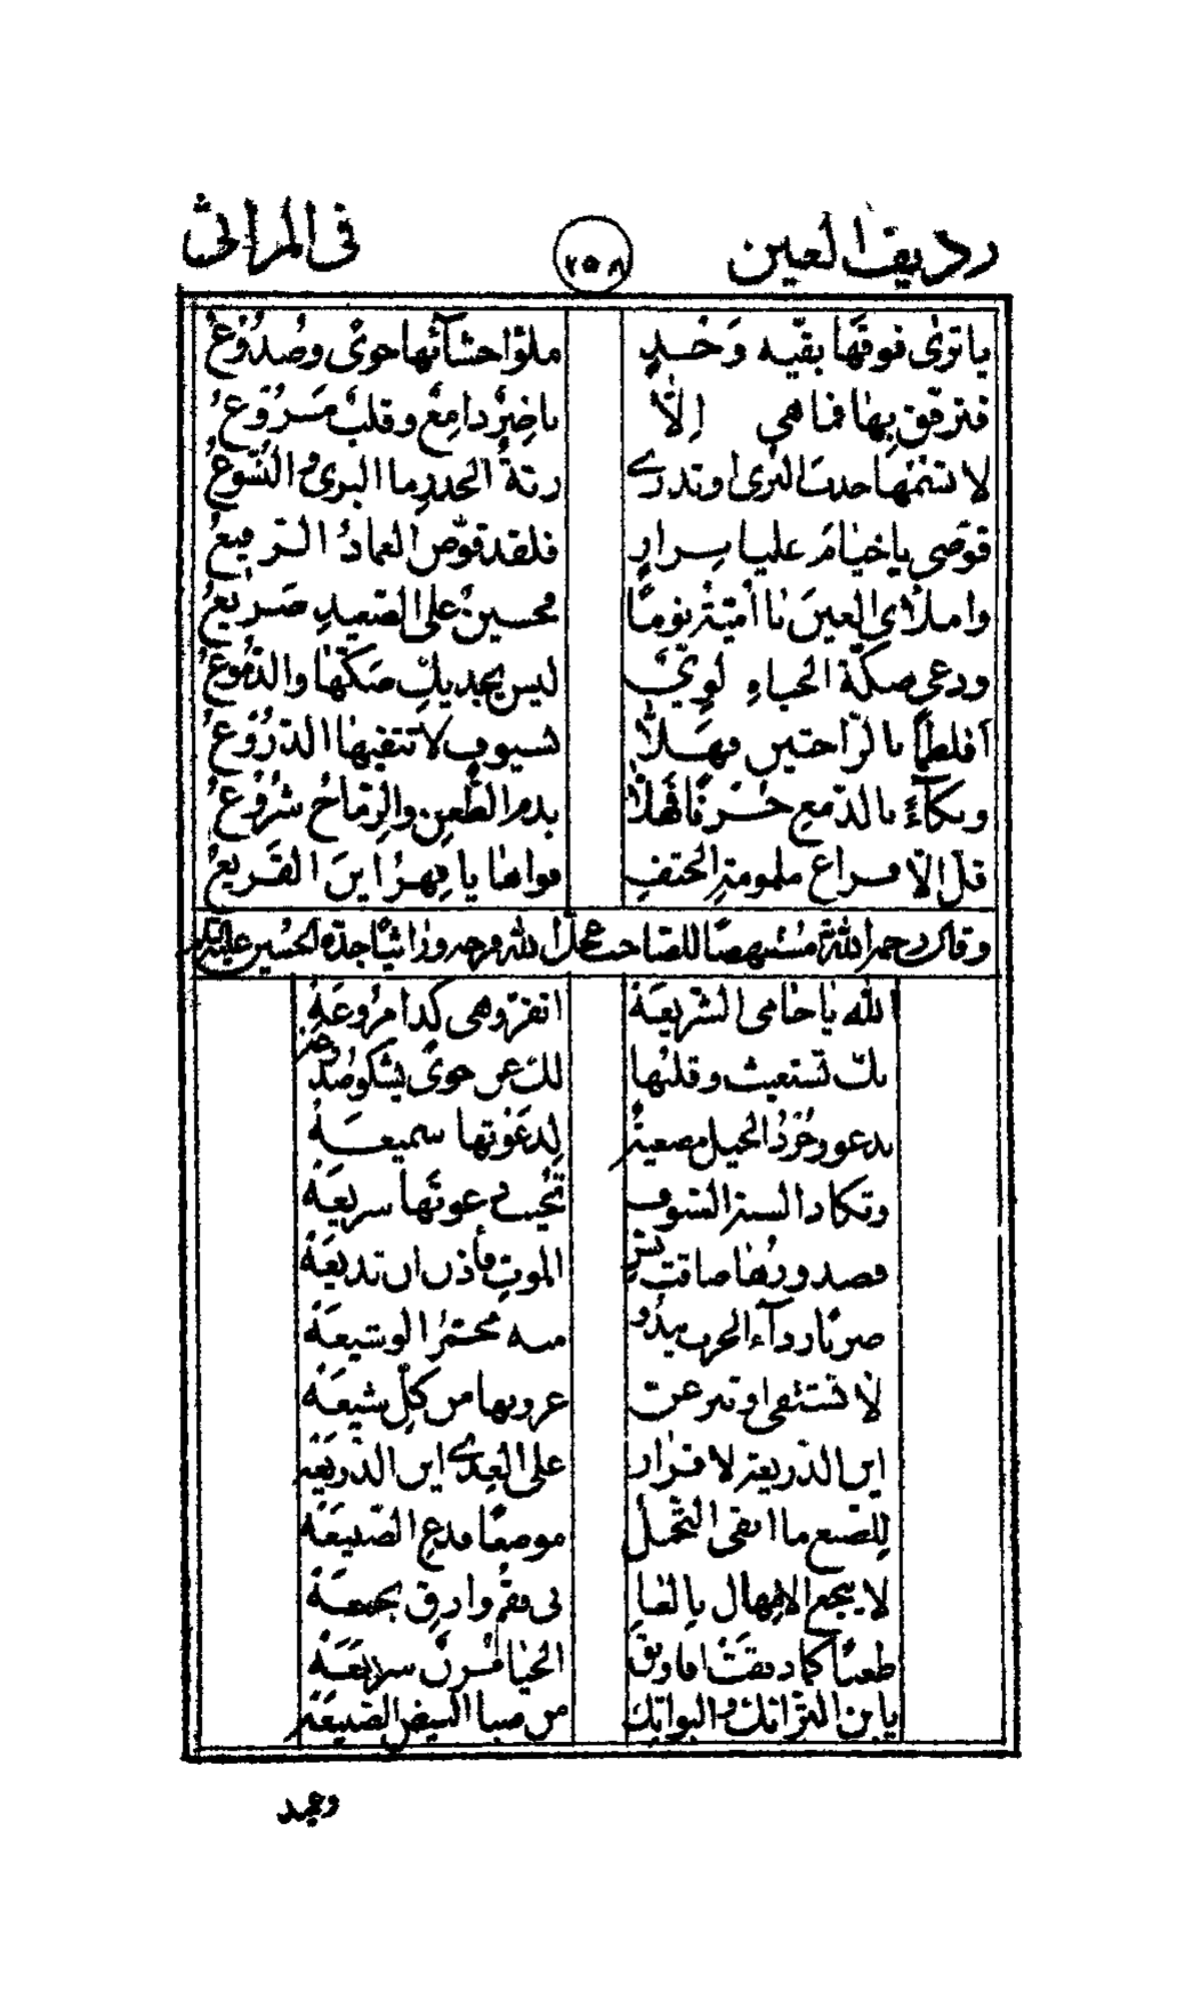 رديف العين ٢٥٨ فى المراثى
ياترى فوقها بقيّه وَجْدٍ ملؤا حشآئها جوىً وصُدُوْعُ
فترفّق بها فما هى اِلّا ناضِرٌ دامِعٌ وقلبٌ مَرُوْعُ
لا تسُمْها جذب البُرى وتدرى رنّةُ الخدرِ ما البرى والنُسُوعُ
قوّضى ياخيامَ عليا نِزارٍ فلقد قوّض العمادُ الرفيعُ
واملأى العينَ يا اُميّةُ نومًا فحسينٌ على الصّعيدِ صَريعُ
ودعى صكّةَ الجباهِ لُوىٌّ ليس يجديكِ صَكّها والدّمُوعُ
افلطمًا بالرّاحتين فهلّا بسيوفٍ لا تتقيها الدّرُوْعُ
وبكآءً بالدّمع حُزنًا فهلّا بدم الطّعنِ والرّماحُ شُرُوْعُ
قلّ الّا قراع ملمومةِ الحتفِ فواها يا فِهرُ اينَ القَريعُ
وقال رحمه الله مستنهضًا للصاحب عجل الله فرجه وراثيًا جدّه الحسين عليه السلام
الله ياحامى الشّريعَهْ اتقرّ وهى كذا مرُوعَهْ
بك تستغيث وقلبُها لك عن جوىً يشكو صُدُوعَهْ
تدعو وجُرْدُ الخيل مصغيةٌ لِدَعْوتها سميعَهْ
وتكاد السنة السّيوف تُجيب دعوتَها سريعَهْ
فصدورُها ضاقت بسرّ الموتِ فأذن ان تذيعَهْ
ضربًا رداء الحرب يبدُو منه محمرّ الوشيعَهْ
لا تشتفى او تنزعنّ عروبها من كلّ شيعَهْ
اين الذّريعة لا قرار على العِدى اين الذّريعَهْ
للصّنع ما ابقى التّحمّل موضعًا فدع الصّنيعَهْ
طعنًا كما دفقت افاويق الحيا مُزنٌ سريعَهْ
يا بن التّرائك والبواتك من ضبا البيض الصّنيعَهْ
وعميد